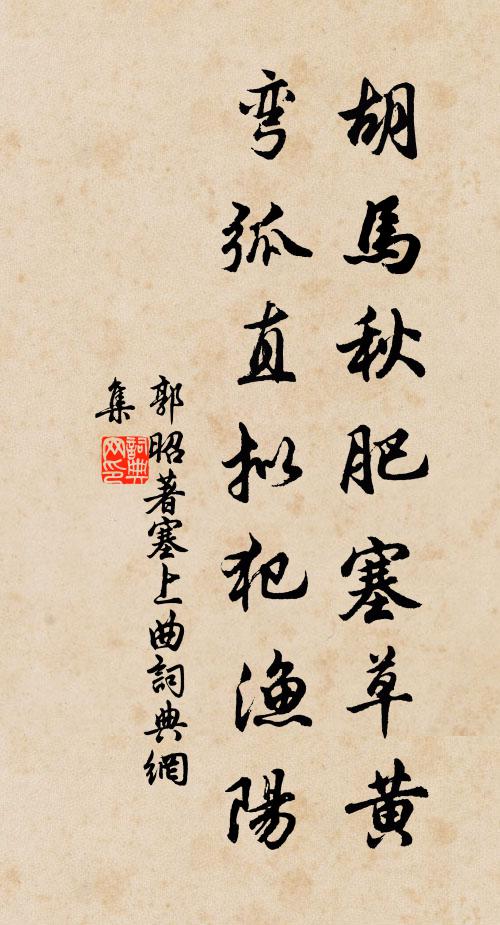 胡馬秋肥塞草黄
弯弧直拟犯渔陽
郭昭著塞上曲詞典網
集
詞典网印